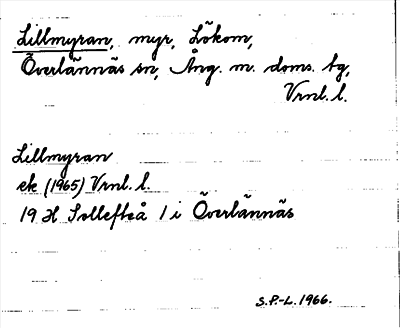 Lillmyran, myr, Lökom,
Överlännäs sn, Ång. m. doms. tg,
Vrnl. l.
Lillmyran
ek (1965) Vrnl. l.
19 H Sollefteå 1 i Överlännäs
S.P.-L. 1966.